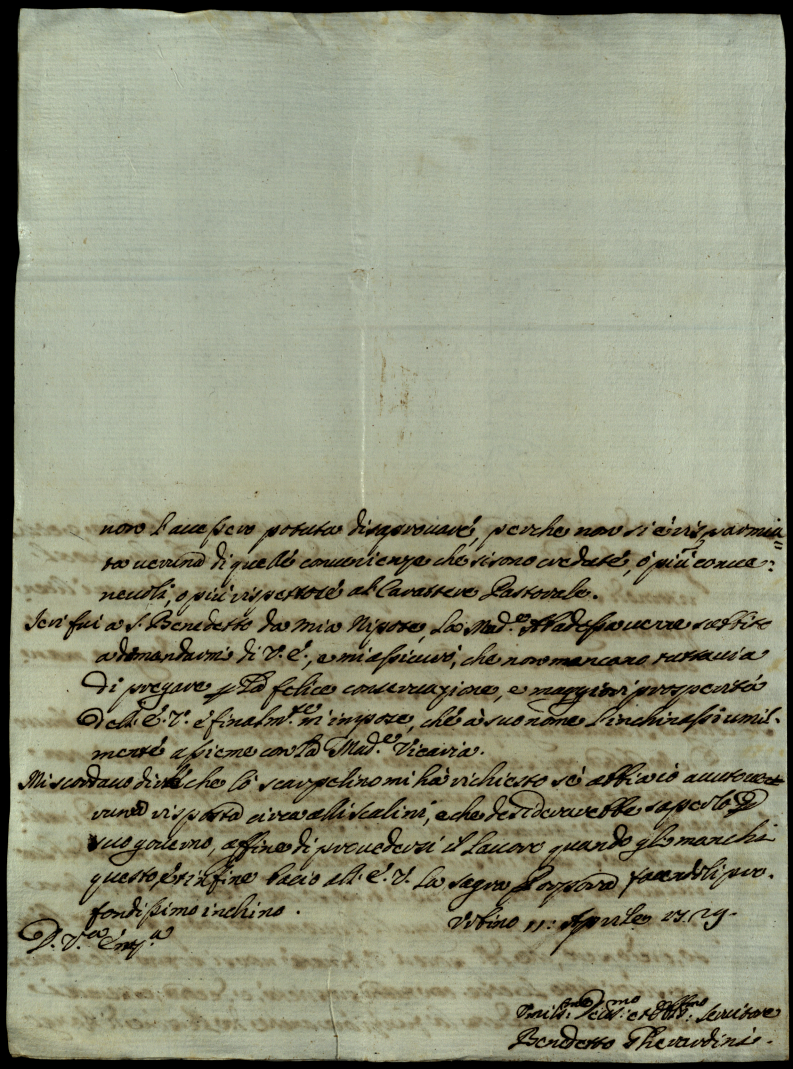 non l'avessero potuta disaprovare, perche non si è risparmia=
ta veruna di quelle convenienze che si sono credute, ò più conve=
nevoli, o più rispettose al Carattere Pastorale.
Jeri fui a S. Benedetto da mia Nipote, la Mad.e Abadessa venne subbito
a domandarmi di V. E., e mi assicurò, che non mancano tuttavia
di pregare p la felice conservazione, e maggiori prosperità
dell'E. V. e finalm.te m'impose, che à suo nome l'inchinassi umil=
mente assieme con la Mad.e Vicaria.
Mi scordavo dirle che lo scarpelino mi hà richiesto se abbia io avuto ve=
runa risposta circa alli scalini, e che desiderarebbe saperlo p
suo governo, affine di provedersi il lavoro quando gli manchi
questo, e infine bacio all'E. V. la sagra Porpora facendoli pro=
fondissimo inchino.
Urbino 11: Aprile 1729.
D. V.a Em.a
Umil.mo Dev.mo et Obb.mo Servitore
Benedetto Gherardini.